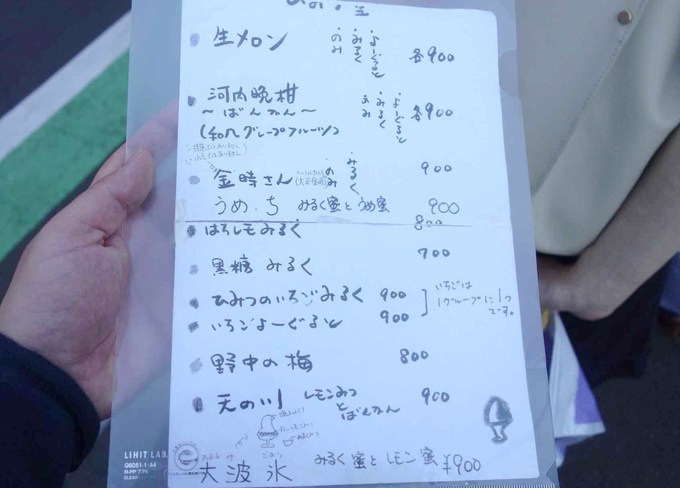 生メロン のみ みるく よーぐると 各900
河内晩柑 のみ みるく よーぐると 各900
～ばんかん～
(和風グレープフルーツ)
金時さん のみ みるく 900
うめ、ち みるく蜜とうめ蜜 900
はちレモみるく 800
黒糖みるく 700
ひみつのいちごみるく 900
いちごは
1グループに1つ
です。
いちごよーぐると 900
野中の梅 800
天の川 レモンみつ
と
ばんかん 900
大波氷 みるく蜜とレモン蜜 ¥900
LIHIT LAB.
G6051-1・A4